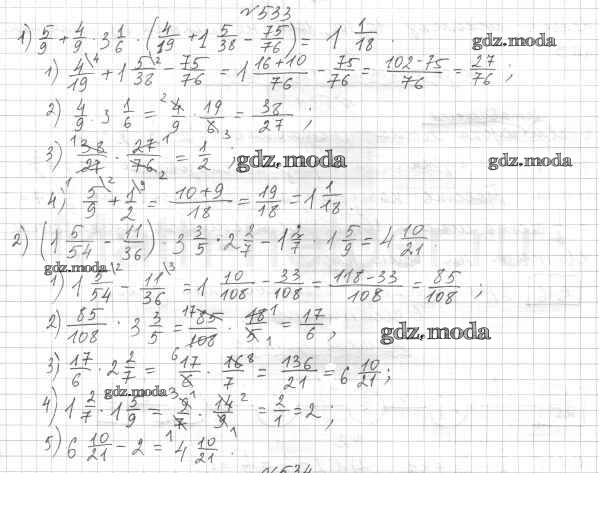 №533
1) 5/9 + 4/9 · 3 1/6 · (4/19 + 1 5/38 − 75/76) = 1 1/18 .
gdz.moda
1) 4/19 \4 + 1 5/38 \2 − 75/76 = 1 16+10/76 − 75/76 = 102-75/76 = 27/76 ;
2) 4/9 · 3 1/6 = 2 4/9 · 19/6 3 = 38/27 ;
3) 1 38/27 · 27/76 1 2 = 1/2 ;
gdz.moda
gdz.moda
4) 5/9 \2 + 1/2 \9 = 10+9/18 = 19/18 = 1 1/18 .
2) (1 5/54 − 11/36) · 3 3/5 · 2 2/7 − 1 2/7 · 1 5/9 = 4 10/21 .
gdz.moda
1) 1 5/54 \2 − 11/36 \3 = 1 10/108 − 33/108 = 118-33/108 = 85/108 ;
2) 85/108 · 3 3/5 = 17 85/108 · 18 1/5 1 = 17/6 ;
gdz.moda
3) 17/6 · 2 2/7 = 17/6 · 16 8/7 = 136/21 = 6 10/21 ;
gdz.moda
4) 1 2/7 · 1 5/9 = 9 1/7 · 14 2/9 1 = 2/1 = 2 ;
5) 6 10/21 − 2 = 4 10/21 .
№534